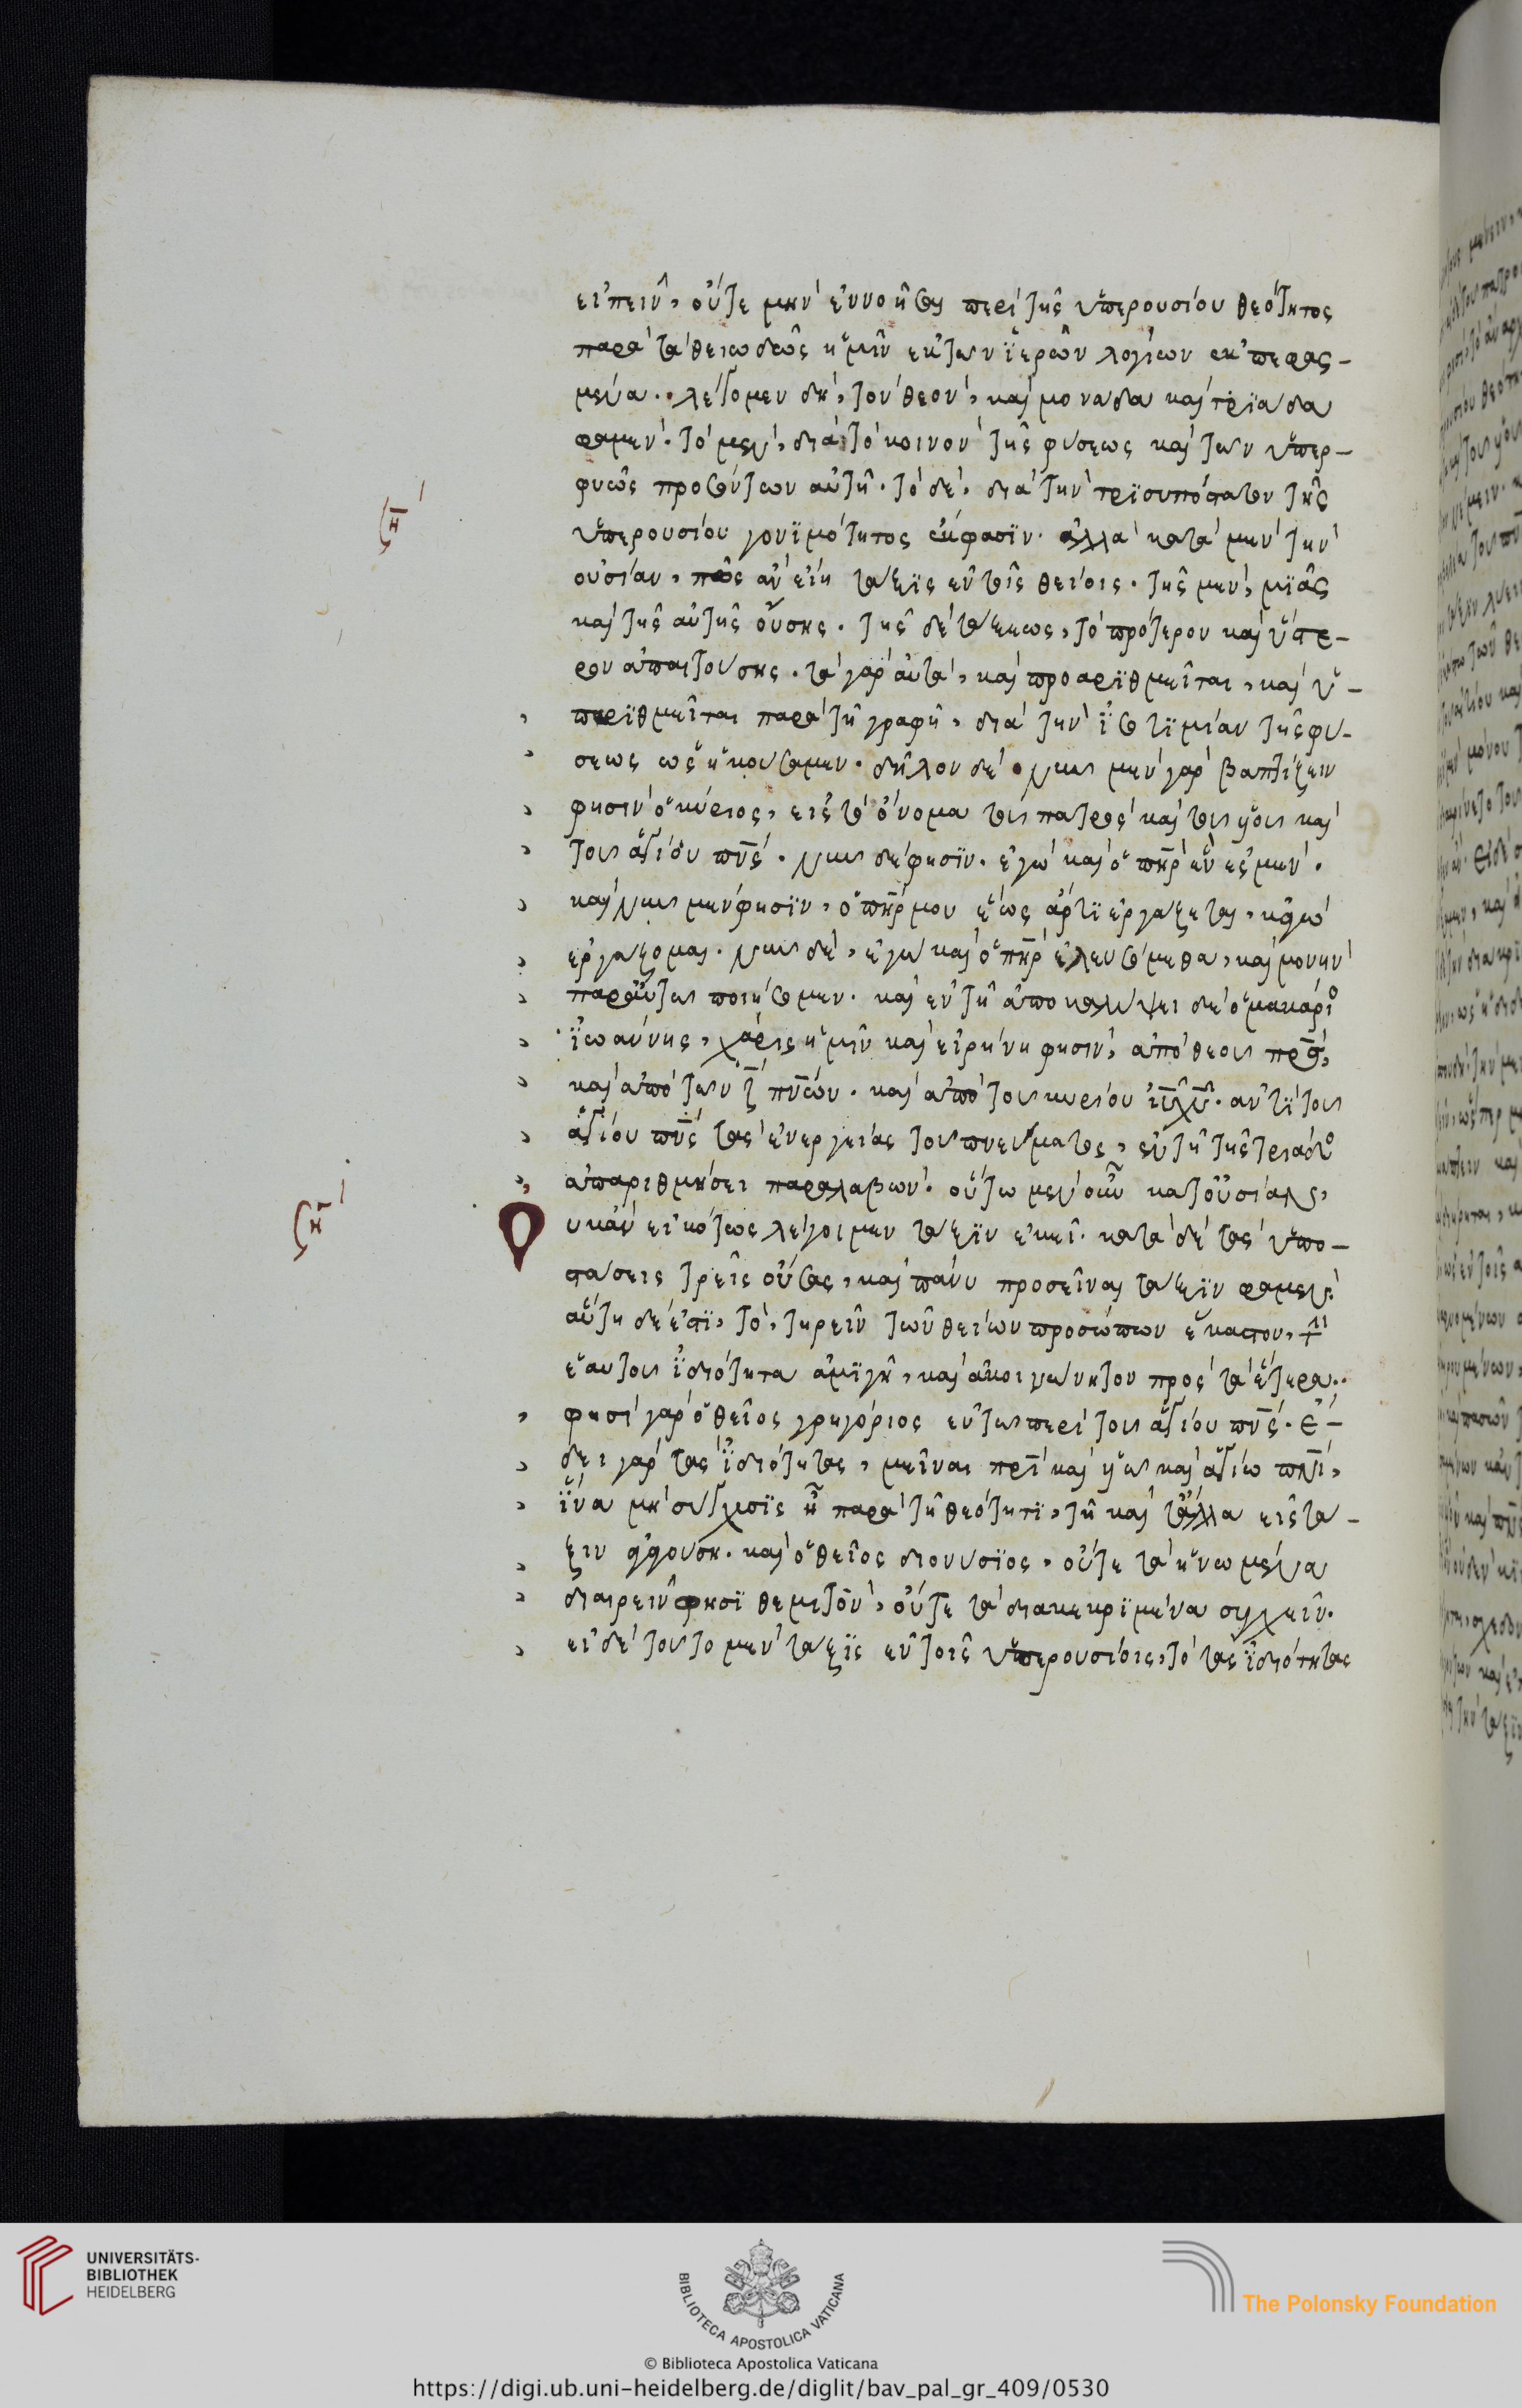 εἰπεῖν, οὔτε μὴν ἐννοῆσαι περὶ τῆς ὑπερουσίου θεότητος
παρὰ τὰ θειωδῶς ἡμῖν ἐκ τῶν ἱερῶν λογίων ἐκπεφας-
μένα. λέγομεν δὴ, τὸν θεὸν, καὶ μονάδα καὶ τριάδα
φαμέν. τὸ μὲν, διὰ τὸ κοινὸν τῆς φύσεως καὶ τῶν ὑπερ-
φυῶς προσόντων αὐτῆ. τὸ δὲ, διὰ τὴν τρισυπόστατον τῆς
ζη
ὑπερουσίου γονιμότητος ἔκφασιν. ἀλλὰ κατὰ μὲν τὴν
οὐσίαν, πῶς ἂν εἴη τάξις ἐν τοῖς θείοις. τῆς μὲν, μιᾶς
καὶ τῆς αὐτῆς οὔσης. τῆς δὲ τάξεως, τὸ πρότερον καὶ ὕστε-
ρον ἀπαιτούσης. τὰ γὰρ αὐτὰ, καὶ προαριθμεῖται, καὶ ὑ-
παριθμεῖται παρὰ τῆ γραφῆ, διὰ τὴν ἰσοτιμίαν τῆς φύ-
σεως ὡς ἠκούσαμεν. δῆλον δὲ. νῦν μὲν γὰρ βαπτίζειν
φησὶν ὁ κύριος, εἰς τὸ ὄνομα τοῦ πατρὸς καὶ τοῦ υἱοῦ καὶ
τοῦ ἁγίου πνς. νῦν δέ φησιν. ἐγὼ καὶ ὁ πηρ ἕν ἐσμεν.
καὶ νῦν μέν φησιν, ὁ πηρ μου ἕως ἄρτι ἐργάζεται, κἀγὼ
ἐργάζομαι. νῦν δὲ, ἐγὼ καὶ ὁ πηρ ἐλευσόμεθα, καὶ μονὴν
παρ' αὐτῶ ποιήσομεν. καὶ ἐν τῆ ἀποκαλύψει δὲ ὁ μακάριο
ἰωάννης, χάρις ἡμῖν καὶ εἰρήνη φησὶν, ἀπὸ θεοῦ πρς,
καὶ ἀπὸ τῶν ζ πνων. καὶ ἀπὸ τοῦ κυρίου ιυ χυ. ἀντὶ τοῦ
ἁγίου πνς τὰς ἐνεργείας τοῦ πνεύματος, ἐν τῆ τῆς τριάδο
ἀπαριθμήσει παραλαβών. οὕτω μὲν οὖν κατ' οὐσίαν,
ζη
Ουκ ἂν εἰκότως λέγοιμεν τάξιν ἐκεῖ. κατὰ δὲ τὰς ὑπο-
στάσεις τρεῖς οὔσας, καὶ πάνυ προσεῖναι τάξιν φαμέν.
αὕτη δέ ἐστι, τὸ, τηρεῖν τῶν θείων προσώπων ἕκαστον, τὴν
ἑαυτοῦ ἰδιότητα ἀμιγῆ, καὶ ἀκοινώνητον πρὸς τὰ ἕτερα.
φησὶ γὰρ ὁ θεῖος γρηγόριος ἐν τῶ περὶ τοῦ ἁγίου πνς. ἔ-
δει γὰρ τὰς ἰδιότητας, μεῖναι πρι καὶ υἱῶ καὶ ἁγίω πνι,
ἵνα μὴ σύγχυσις ἦ παρὰ τῆ θεότητι, τῆ καὶ τἄλλα εἰς τά-
ξιν ἀγούση. καὶ ὁ θεῖος διονύσιος, οὔτε τὰ ἡνωμένα
διαιρεῖν φησὶ θεμιτὸν, οὔτε τὰ διακεκριμένα συγχεῖν.
εἰ δὲ τοῦτο μὲν τάξις ἐν τοῖς ὑπερουσίοις, τὸ τὰς ἰδιότητας
UNIVERSITÄTS-
BIBLIOTHEK
HEIDELBERG
BIBLIOTECA APOSTOLICA VATICANA
The Polonsky Foundation
© Biblioteca Apostolica Vaticana
https://digi.ub.uni-heidelberg.de/diglit/bav_pal_gr_409/0530